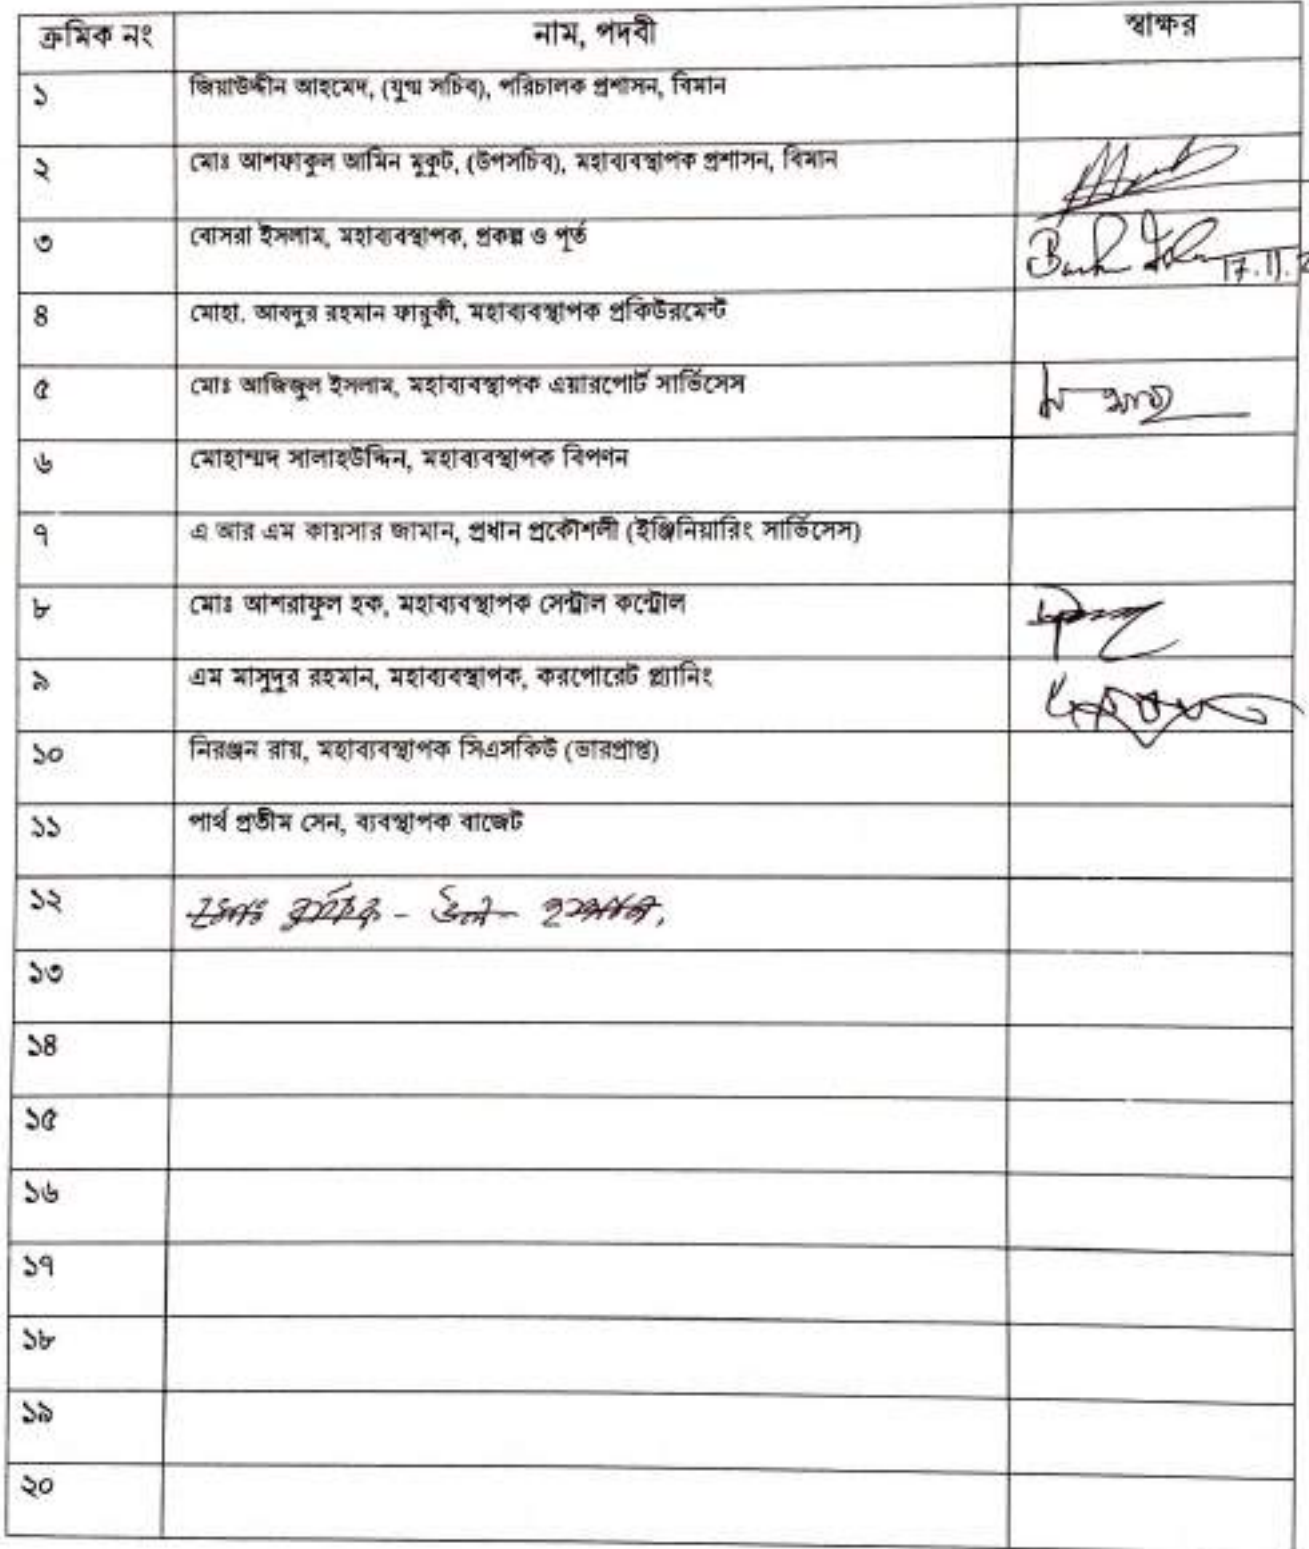 ক্রমিক নং নাম, পদবী স্বাক্ষর
১ জিয়াউদ্দীন আহমেদ, (যুগ্ম সচিব), পরিচালক প্রশাসন, বিমান
২ মোঃ আশফাকুল আমিন মুকুট, (উপসচিব), মহাব্যবস্থাপক প্রশাসন, বিমান
৩ বোসরা ইসলাম, মহাব্যবস্থাপক, প্রকল্প ও পূর্ত 17.11.2
৪ মোহা. আবদুর রহমান ফারুকী, মহাব্যবস্থাপক প্রকিউরমেন্ট
৫ মোঃ আজিজুল ইসলাম, মহাব্যবস্থাপক এয়ারপোর্ট সার্ভিসেস
৬ মোহাম্মদ সালাহউদ্দিন, মহাব্যবস্থাপক বিপণন
৭ এ আর এম কায়সার জামান, প্রধান প্রকৌশলী (ইঞ্জিনিয়ারিং সার্ভিসেস)
৮ মোঃ আশরাফুল হক, মহাব্যবস্থাপক সেন্ট্রাল কন্ট্রোল
৯ এম মাসুদুর রহমান, মহাব্যবস্থাপক, করপোরেট প্ল্যানিং
১০ নিরঞ্জন রায়, মহাব্যবস্থাপক সিএসকিউ (ভারপ্রাপ্ত)
১১ পার্থ প্রতীম সেন, ব্যবস্থাপক বাজেট
১২
১৩
১৪
১৫
১৬
১৭
১৮
১৯
২০